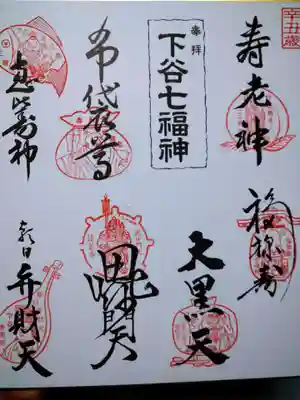 辛丑歳
寿老神
奉拝
下谷七福神
布袋尊
恵比寿神
福禄寿
大黒天
毘沙門天
朝日弁財天